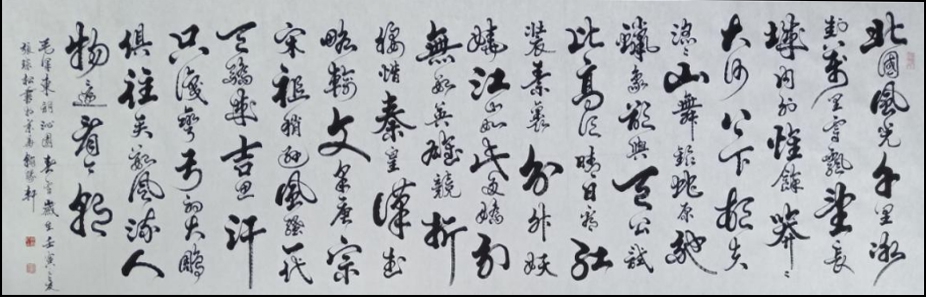 北國風光千里冰
封萬里雪飄望長
城内外惟餘莽々
大河上下頓失
滔々山舞銀蛇原馳
蠟象欲與天公試
比高須晴日看紅
裝素裹分外妖
嬈江山如此多嬌引
無數英雄競折
腰惜秦皇漢武
略輸文采唐宗
宋祖稍遜風騷一代
天驕成吉思汗
只識彎弓射大鵰
俱往矣數風流人
物還看今朝
毛澤東詞沁園春雪歲在壬寅之夏
松書於京